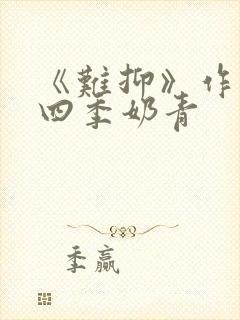 《難抑》作
四季奶青
季赢